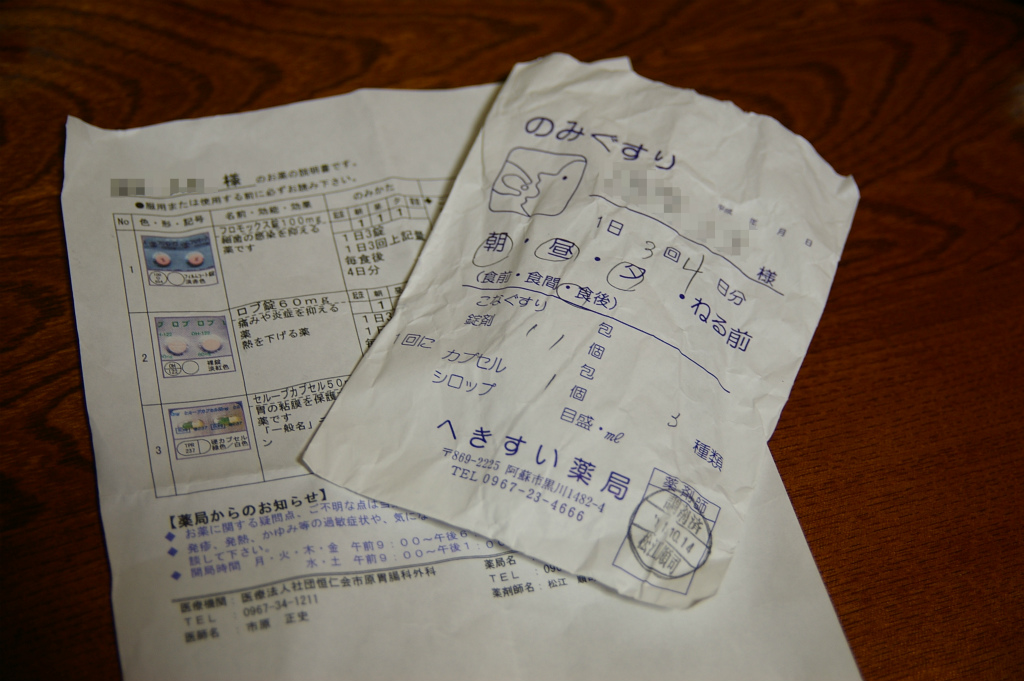 様 のお薬の説明書です。
●服用または使用する前に必ずお読み下さい。
No 色・形・記号 名前・効能・効果 のみかた
1
フロモックス錠100mg
細菌の感染を抑える
薬です
1 1 1
1日3錠
1日3回上記量
毎食後
4日分
淡赤色
2
ロブ錠60mg
痛みや炎症を抑える
薬
熱を下げる薬
裸錠
淡紅色
3
セルーブカプセル50m
胃の粘膜を保護
薬です
「一般名」
ン
硬カプセル
緑色/白色
【薬局からのお知らせ】
◆ お薬に関する疑問点、ご不明な点は
◆ 発疹、発熱、かゆみ等の過敏症状や、気にな
談して下さい。
◆ 開局時間 月・火・木・金 午前9:00~午後6
水・土 午前9:00~午後1:0
医療機関:医療法人社団恒仁会市原胃腸科外科
TEL :0967-34-1211
医師名 :市原 正史
薬局名
TEL :
薬剤師名:松江
のみぐすり
平成 年 月 日
様
1日 3回 4日分
朝・昼・夕・ねる前
(食前・食間・食後)
こなぐすり 包
錠剤 1 1 個
1回に カプセル 1 包
シロップ 個
目盛・ml
3 種類
へきすい薬局
〒869-2225 阿蘇市黒川1482-4
TEL 0967-23-4666
薬剤師
調剤済
10.14